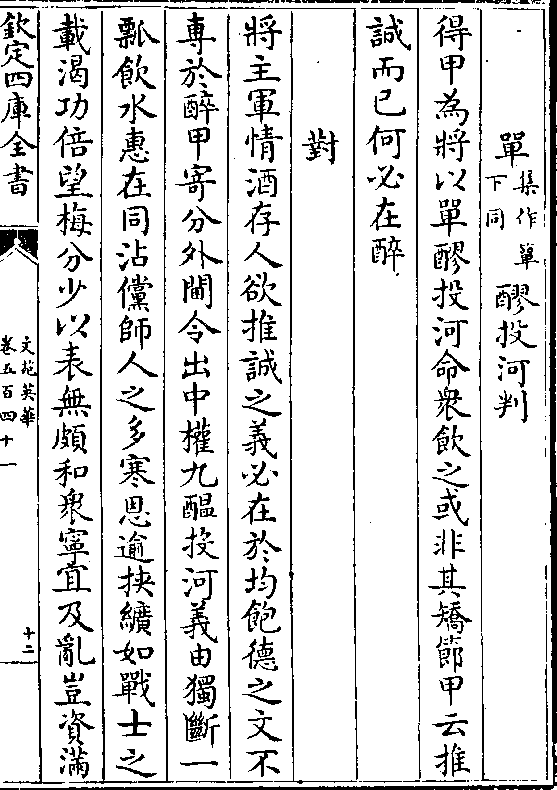 單集作簞下同醪投河判
得甲為將以單醪投河命衆飲之或非其矯節甲云推
誠而已何必在醉
對
將主軍情酒存人欲推誠之義必在於均飽德之文不
專於醉甲寄分外閫令出中權九醞投河義由獨斷一
瓢飲水惠在同沾儻師人之多寒恩逾挾纊如戰士之
載渴功倍望梅分少以表無頗和衆寧宜及亂豈資滿
欽定四庫全書
文苑英華
卷五百四十一
十二